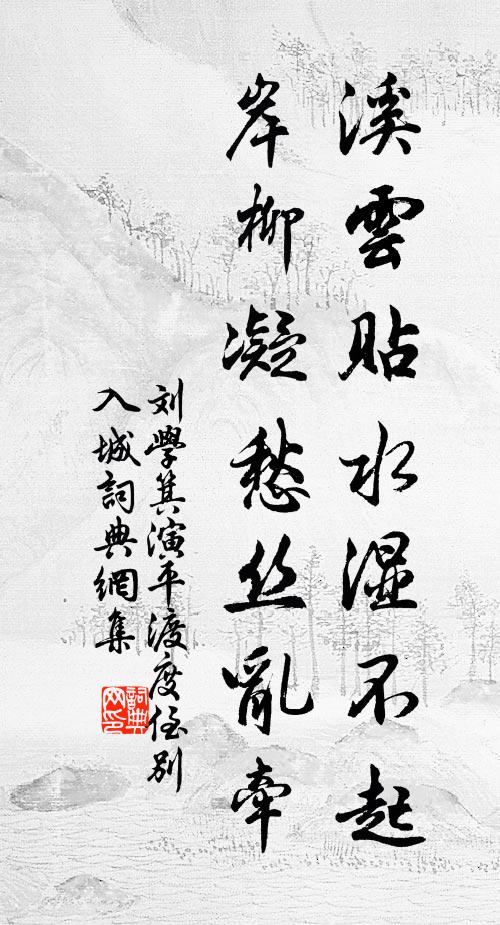 溪雲貼水湿不起
岸柳凝愁丝亂牽
刘學箕演平渡度侄别
入城詞典網集
詞典網印